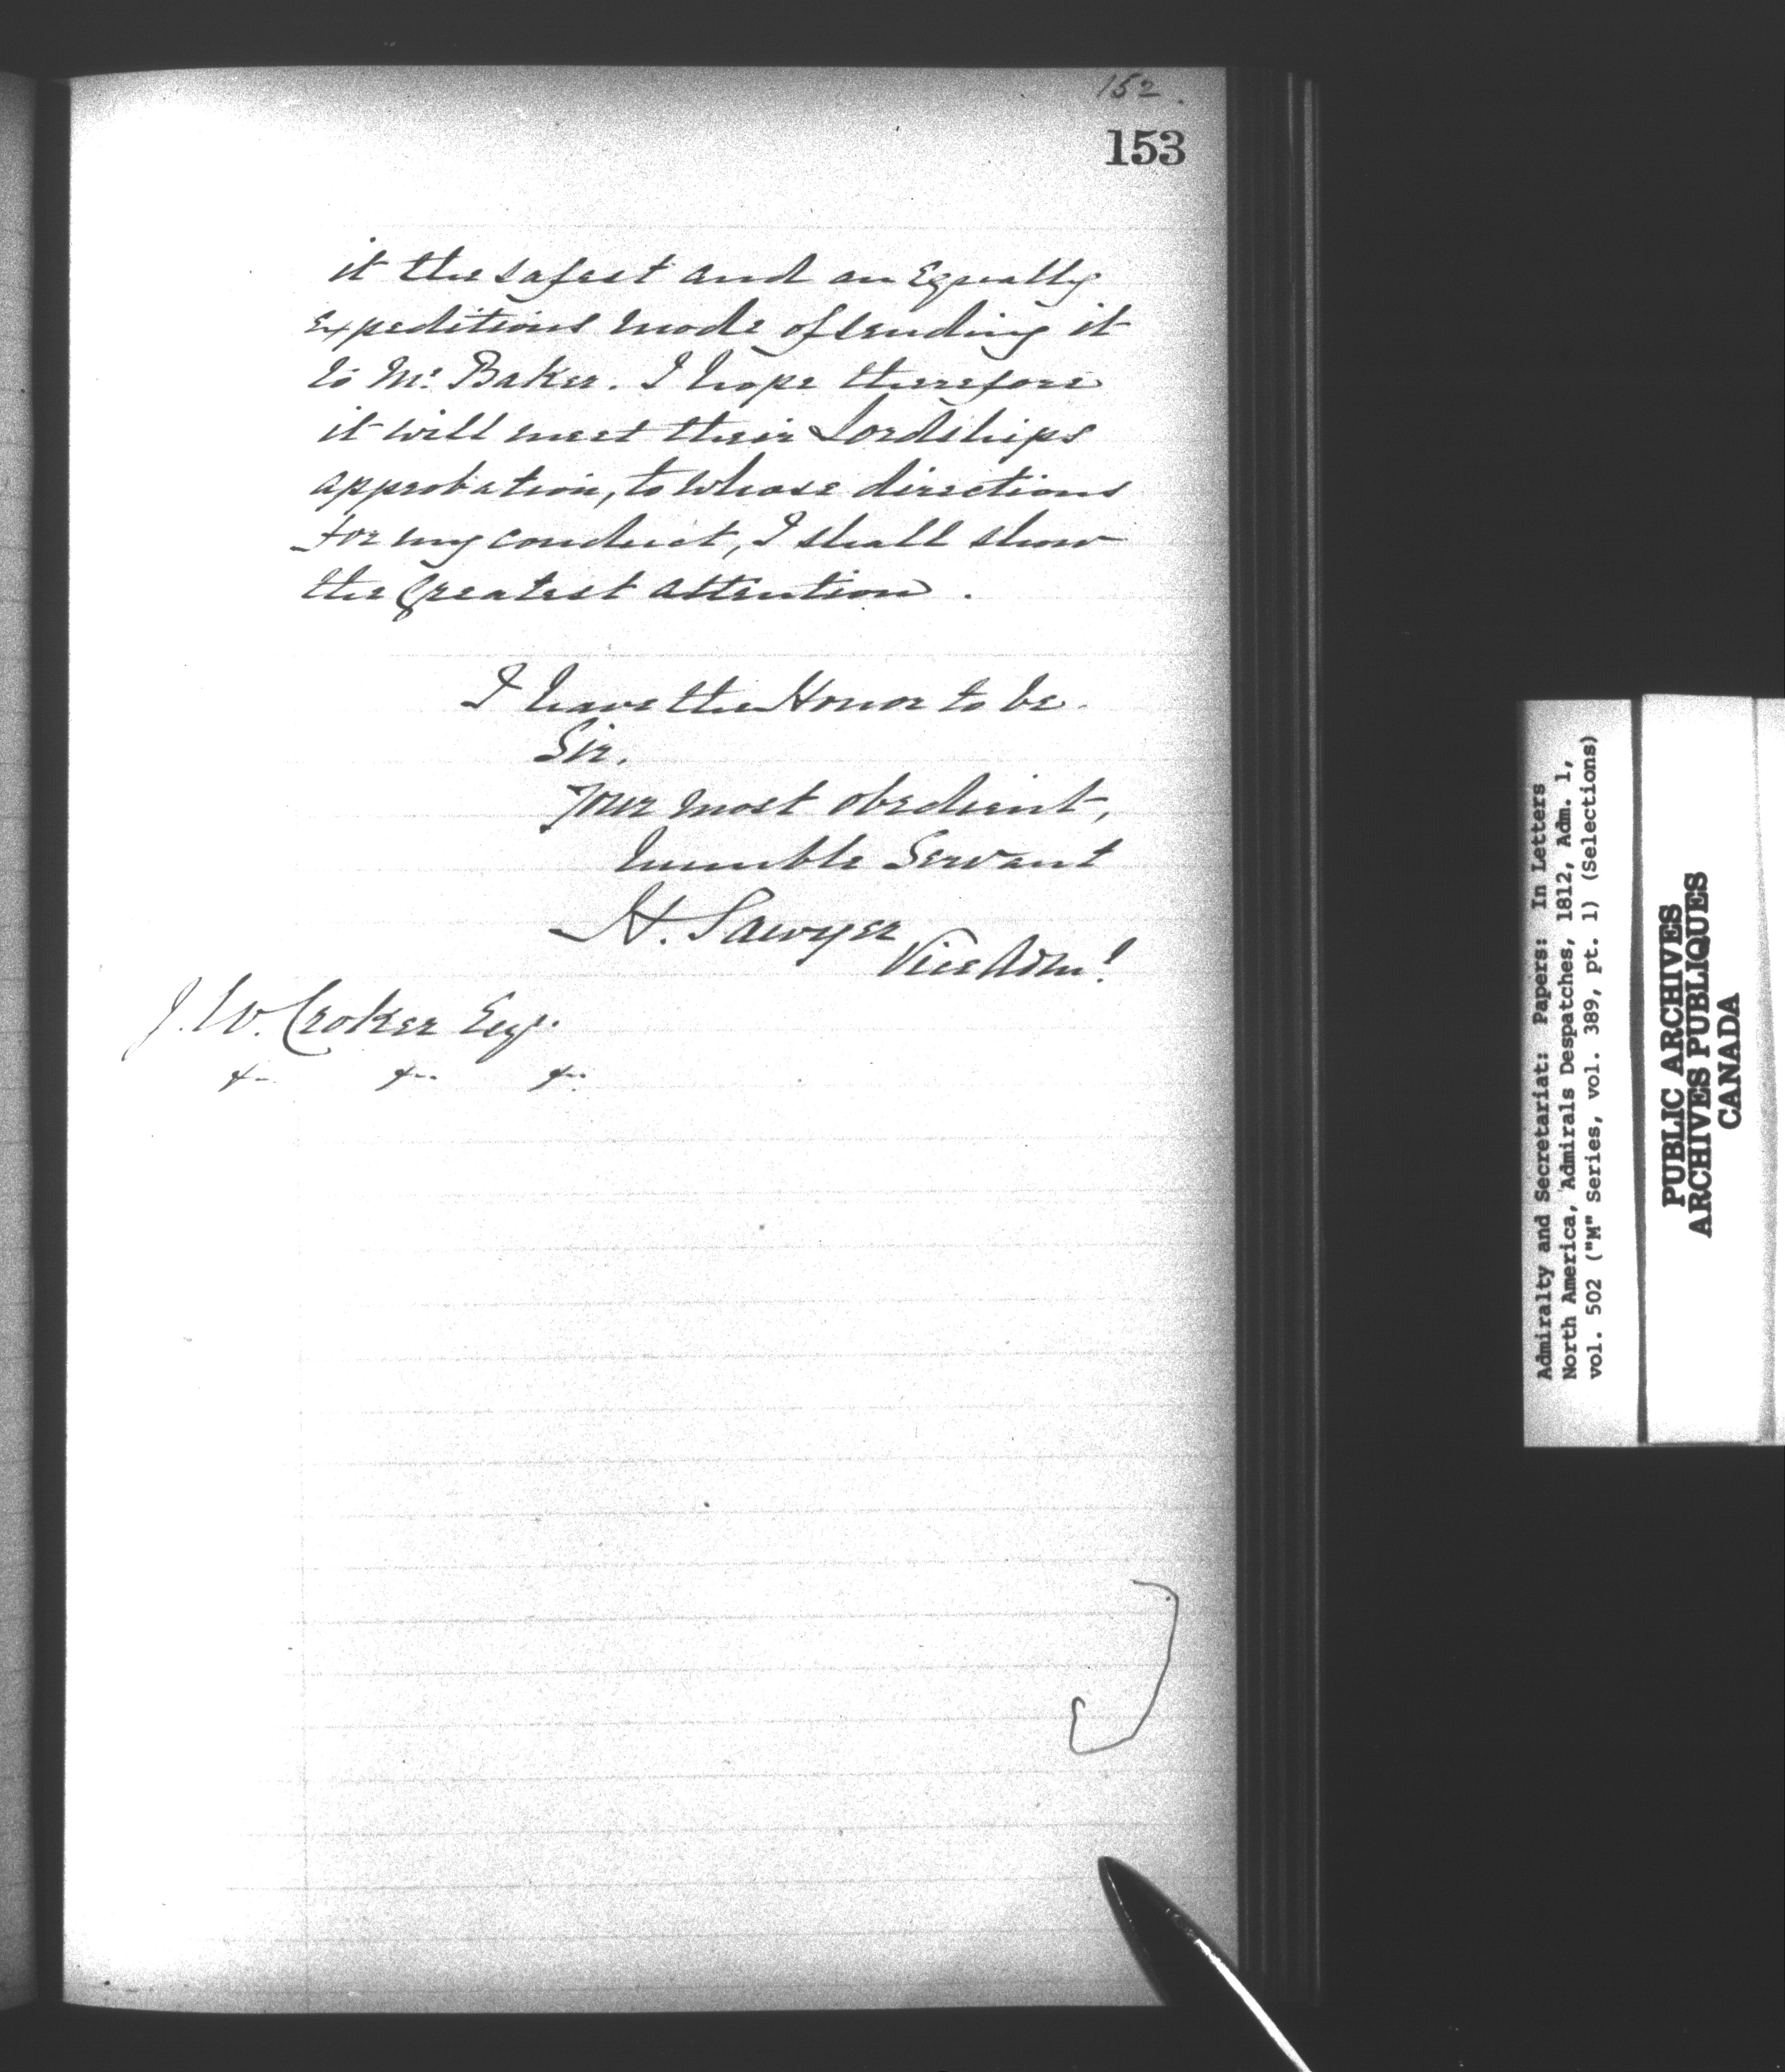 152.
153
it the safest and an Equally
expeditious mode of sending it
to Mr. Baker. I hope therefore
it will meet their Lordships
approbation, to whose directions
for my conduct, I shall show
the Greatest attention.
I have the Honor to be.
Sir.
Your most obedient,
humble Servant
H. Sawyer
Vice Adml
J. W. Croker Esqr.
&c. &c. &c.
Admiralty and Secretariat: Papers: In Letters
North America, Admirals Despatches, 1812, Adm. 1,
vol. 502 ("M" Series, vol. 389, pt. 1) (Selections)
PUBLIC ARCHIVES
ARCHIVES PUBLIQUES
CANADA